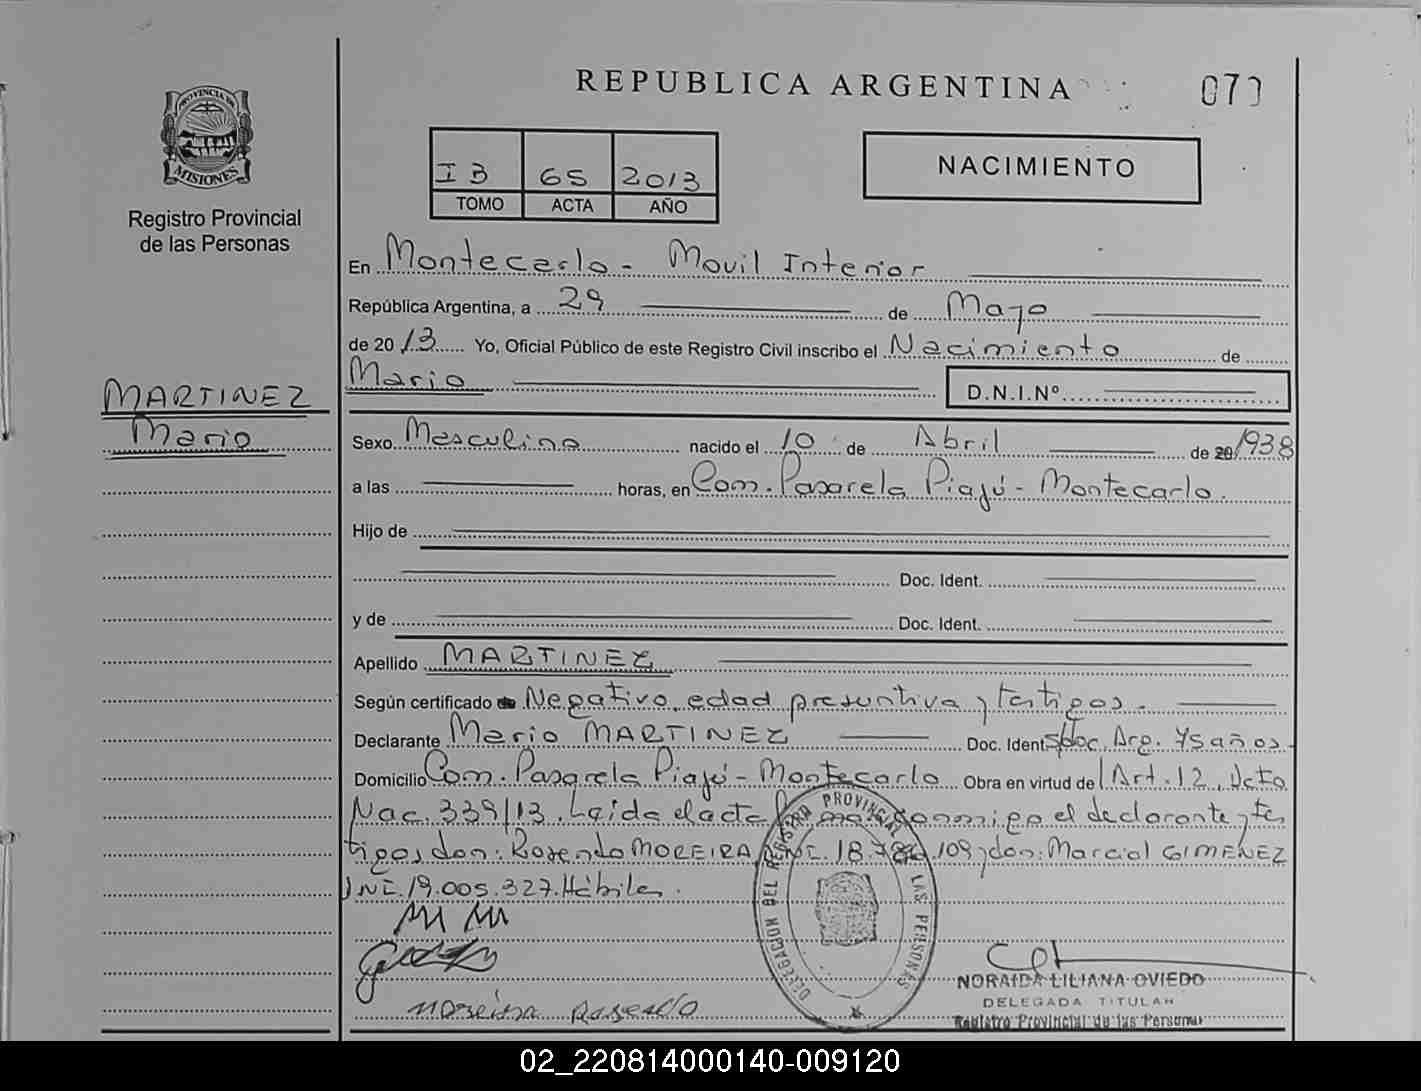 REPUBLICA ARGENTINA
PROVINCIA DE
MISIONES
Registro Provincial
de las Personas
I B 65 2013
TOMO ACTA AÑO
NACIMIENTO
En Montecarlo - Movil Interior
República Argentina, a 29 de Mayo
de 2013 Yo, Oficial Público de este Registro Civil inscribo el Nacimiento de
Mario D.N.I.Nº
MARTINEZ
Mario
Sexo Masculino nacido el 10 de Abril de 20 1938
a las horas, en Com. Pasarela Piajú - Montecarlo.
Hijo de
Doc. Ident.
y de Doc. Ident.
Apellido MARTINEZ
Según certificado de Negativo, edad presuntiva y testigos.
Declarante Mario MARTINEZ Doc. Ident. S/doc. Arg. 75 años.
Domicilio Com. Pasarela Piajú - Montecarlo Obra en virtud del Art. 12, Dcto
Nac. 339/13. Leída el acta conmigo el declarante y tes
tigos don: Rosendo MOREIRA, 109 y don: Marcial GIMENEZ
DNI. 19.005.327. Hábiles.
DELEGACION DEL REGISTRO PROVINCIAL DE LAS PERSONAS
NORAIDA LILIANA OVIEDO
DELEGADA TITULAR
Registro Provincial de las Personas
Moreira Rosendo
02_220814000140-009120